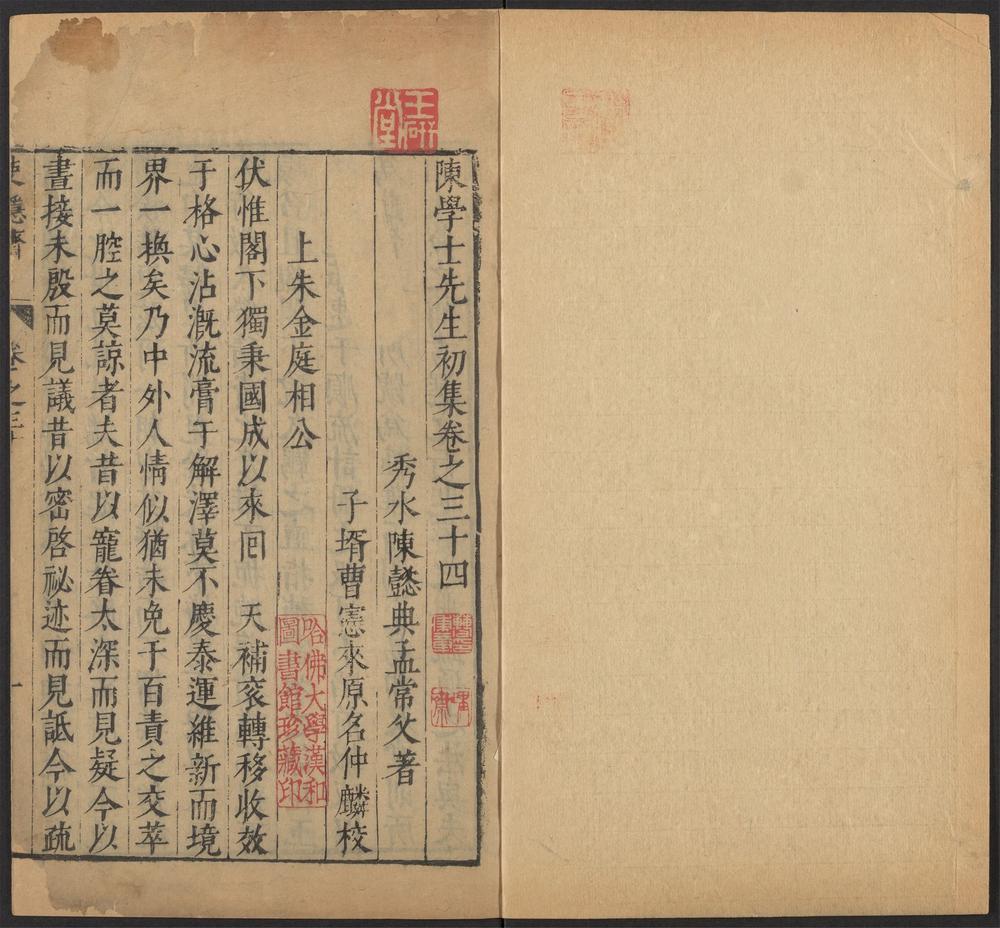 陳學士先生初集卷之三十四
秀水陳懿典孟常父著
子壻曹憲來原名仲麟校
上朱金庭相公
伏惟閣下獨秉國成以來囘天補衮轉移收效
于格心沾漑流膏于解澤莫不慶泰運維新而境
界一換矣乃中外人情似猶未免于百責之交萃
而一腔之莫諒者夫昔以寵眷太深而見疑今以
晝接未殷而見議昔以密啓祕迹而見詆今以疏
卷之三十
一
玉研堂
哈佛大學漢和圖書館珍藏印